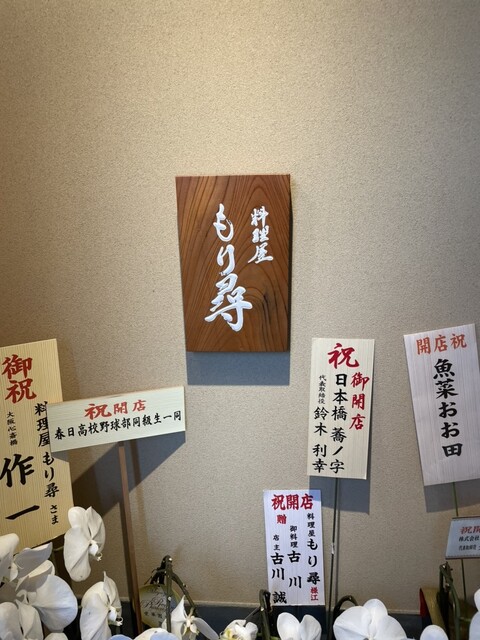 料理屋
もり尋
御祝
料理屋もり尋さま
大阪心斎橋
作一
祝開店
春日高校野球部同級生一同
祝御開店
日本橋蕎ノ字
代表取締役 鈴木利幸
開店祝
魚菜おお田
祝開店
料理屋もり尋様江
贈
御料理古川
店主古川誠
祝開
株式会社